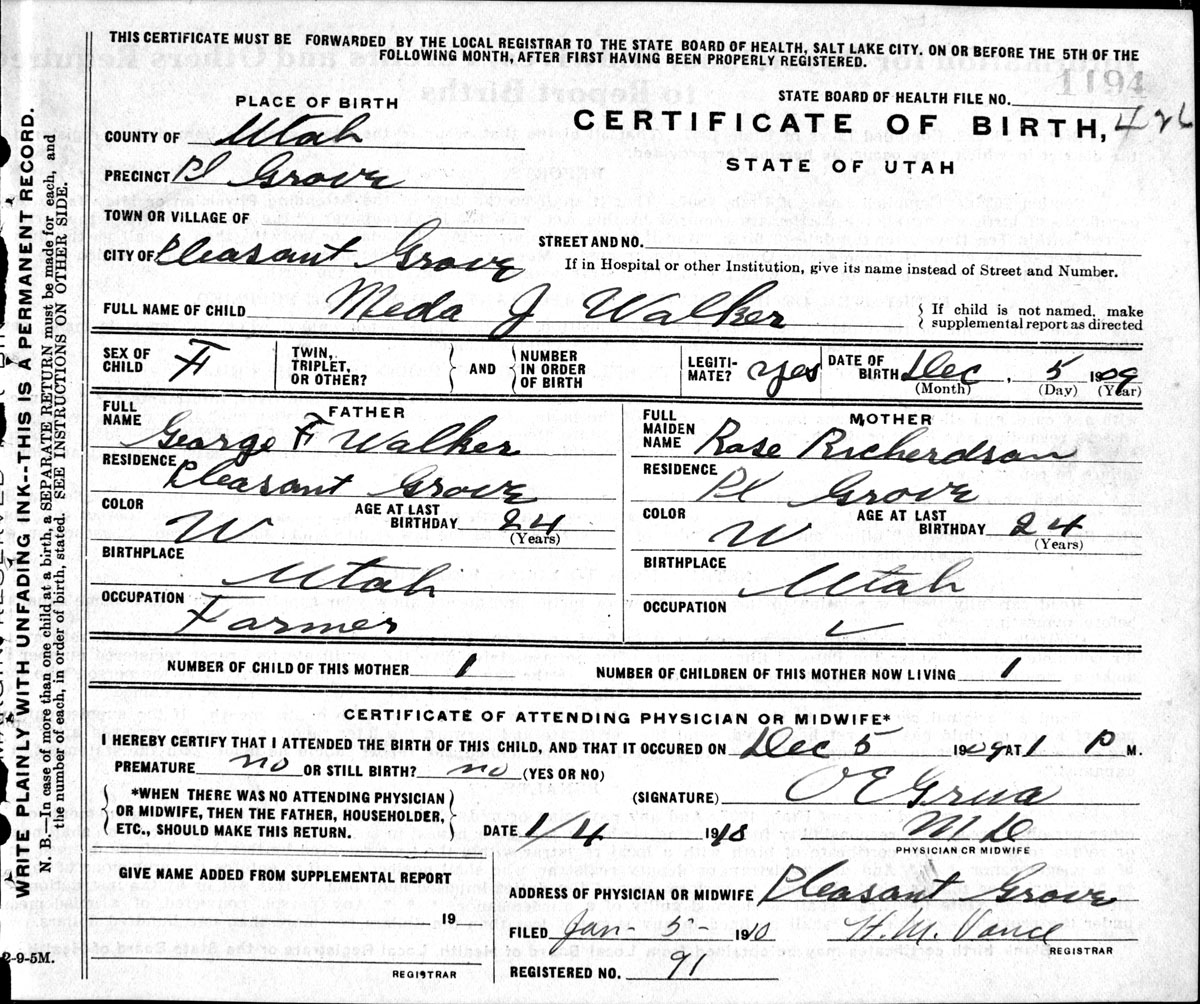 THIS CERTIFICATE MUST BE FORWARDED BY THE LOCAL REGISTRAR TO THE STATE BOARD OF HEALTH, SALT LAKE CITY. ON OR BEFORE THE 5TH OF THE
FOLLOWING MONTH, AFTER FIRST HAVING BEEN PROPERLY REGISTERED.
1194
STATE BOARD OF HEALTH FILE NO.
PLACE OF BIRTH
CERTIFICATE OF BIRTH, 426
STATE OF UTAH
COUNTY OF Utah
PRECINCT Pl Grove
TOWN OR VILLAGE OF
CITY OF Pleasant Grove
STREET AND NO.
If in Hospital or other Institution, give its name instead of Street and Number.
FULL NAME OF CHILD Meda J Walker
If child is not named, make
supplemental report as directed
SEX OF CHILD F
TWIN, TRIPLET, OR OTHER?
AND
NUMBER IN ORDER OF BIRTH
LEGITI-MATE? Yes
DATE OF BIRTH Dec, 5 1909
(Month) (Day) (Year)
FATHER
FULL NAME George F Walker
RESIDENCE Pleasant Grove
COLOR W
AGE AT LAST BIRTHDAY 24
(Years)
BIRTHPLACE Utah
OCCUPATION Farmer
MOTHER
FULL MAIDEN NAME Rose Richerdson
RESIDENCE Pl Grove
COLOR W
AGE AT LAST BIRTHDAY 24
(Years)
BIRTHPLACE Utah
OCCUPATION
NUMBER OF CHILD OF THIS MOTHER 1
NUMBER OF CHILDREN OF THIS MOTHER NOW LIVING 1
CERTIFICATE OF ATTENDING PHYSICIAN OR MIDWIFE*
I HEREBY CERTIFY THAT I ATTENDED THE BIRTH OF THIS CHILD, AND THAT IT OCCURED ON Dec 5 1909 AT 1 P M.
PREMATURE no OR STILL BIRTH? no (YES OR NO)
*WHEN THERE WAS NO ATTENDING PHYSICIAN
OR MIDWIFE, THEN THE FATHER, HOUSEHOLDER,
ETC., SHOULD MAKE THIS RETURN.
(SIGNATURE) O E Grua
DATE 1/4 1910 M D
PHYSICIAN OR MIDWIFE
GIVE NAME ADDED FROM SUPPLEMENTAL REPORT
19
REGISTRAR
ADDRESS OF PHYSICIAN OR MIDWIFE Pleasant Grove
FILED Jan - 5 - 1910 H. M. Vance
REGISTRAR
REGISTERED NO. 91
2-9-5M.
WRITE PLAINLY WITH UNFADING INK--THIS IS A PERMANENT RECORD.
N. B.—In case of more than one child at a birth, a SEPARATE RETURN must be made for each, and
the number of each, in order of birth, stated. SEE INSTRUCTIONS ON OTHER SIDE.